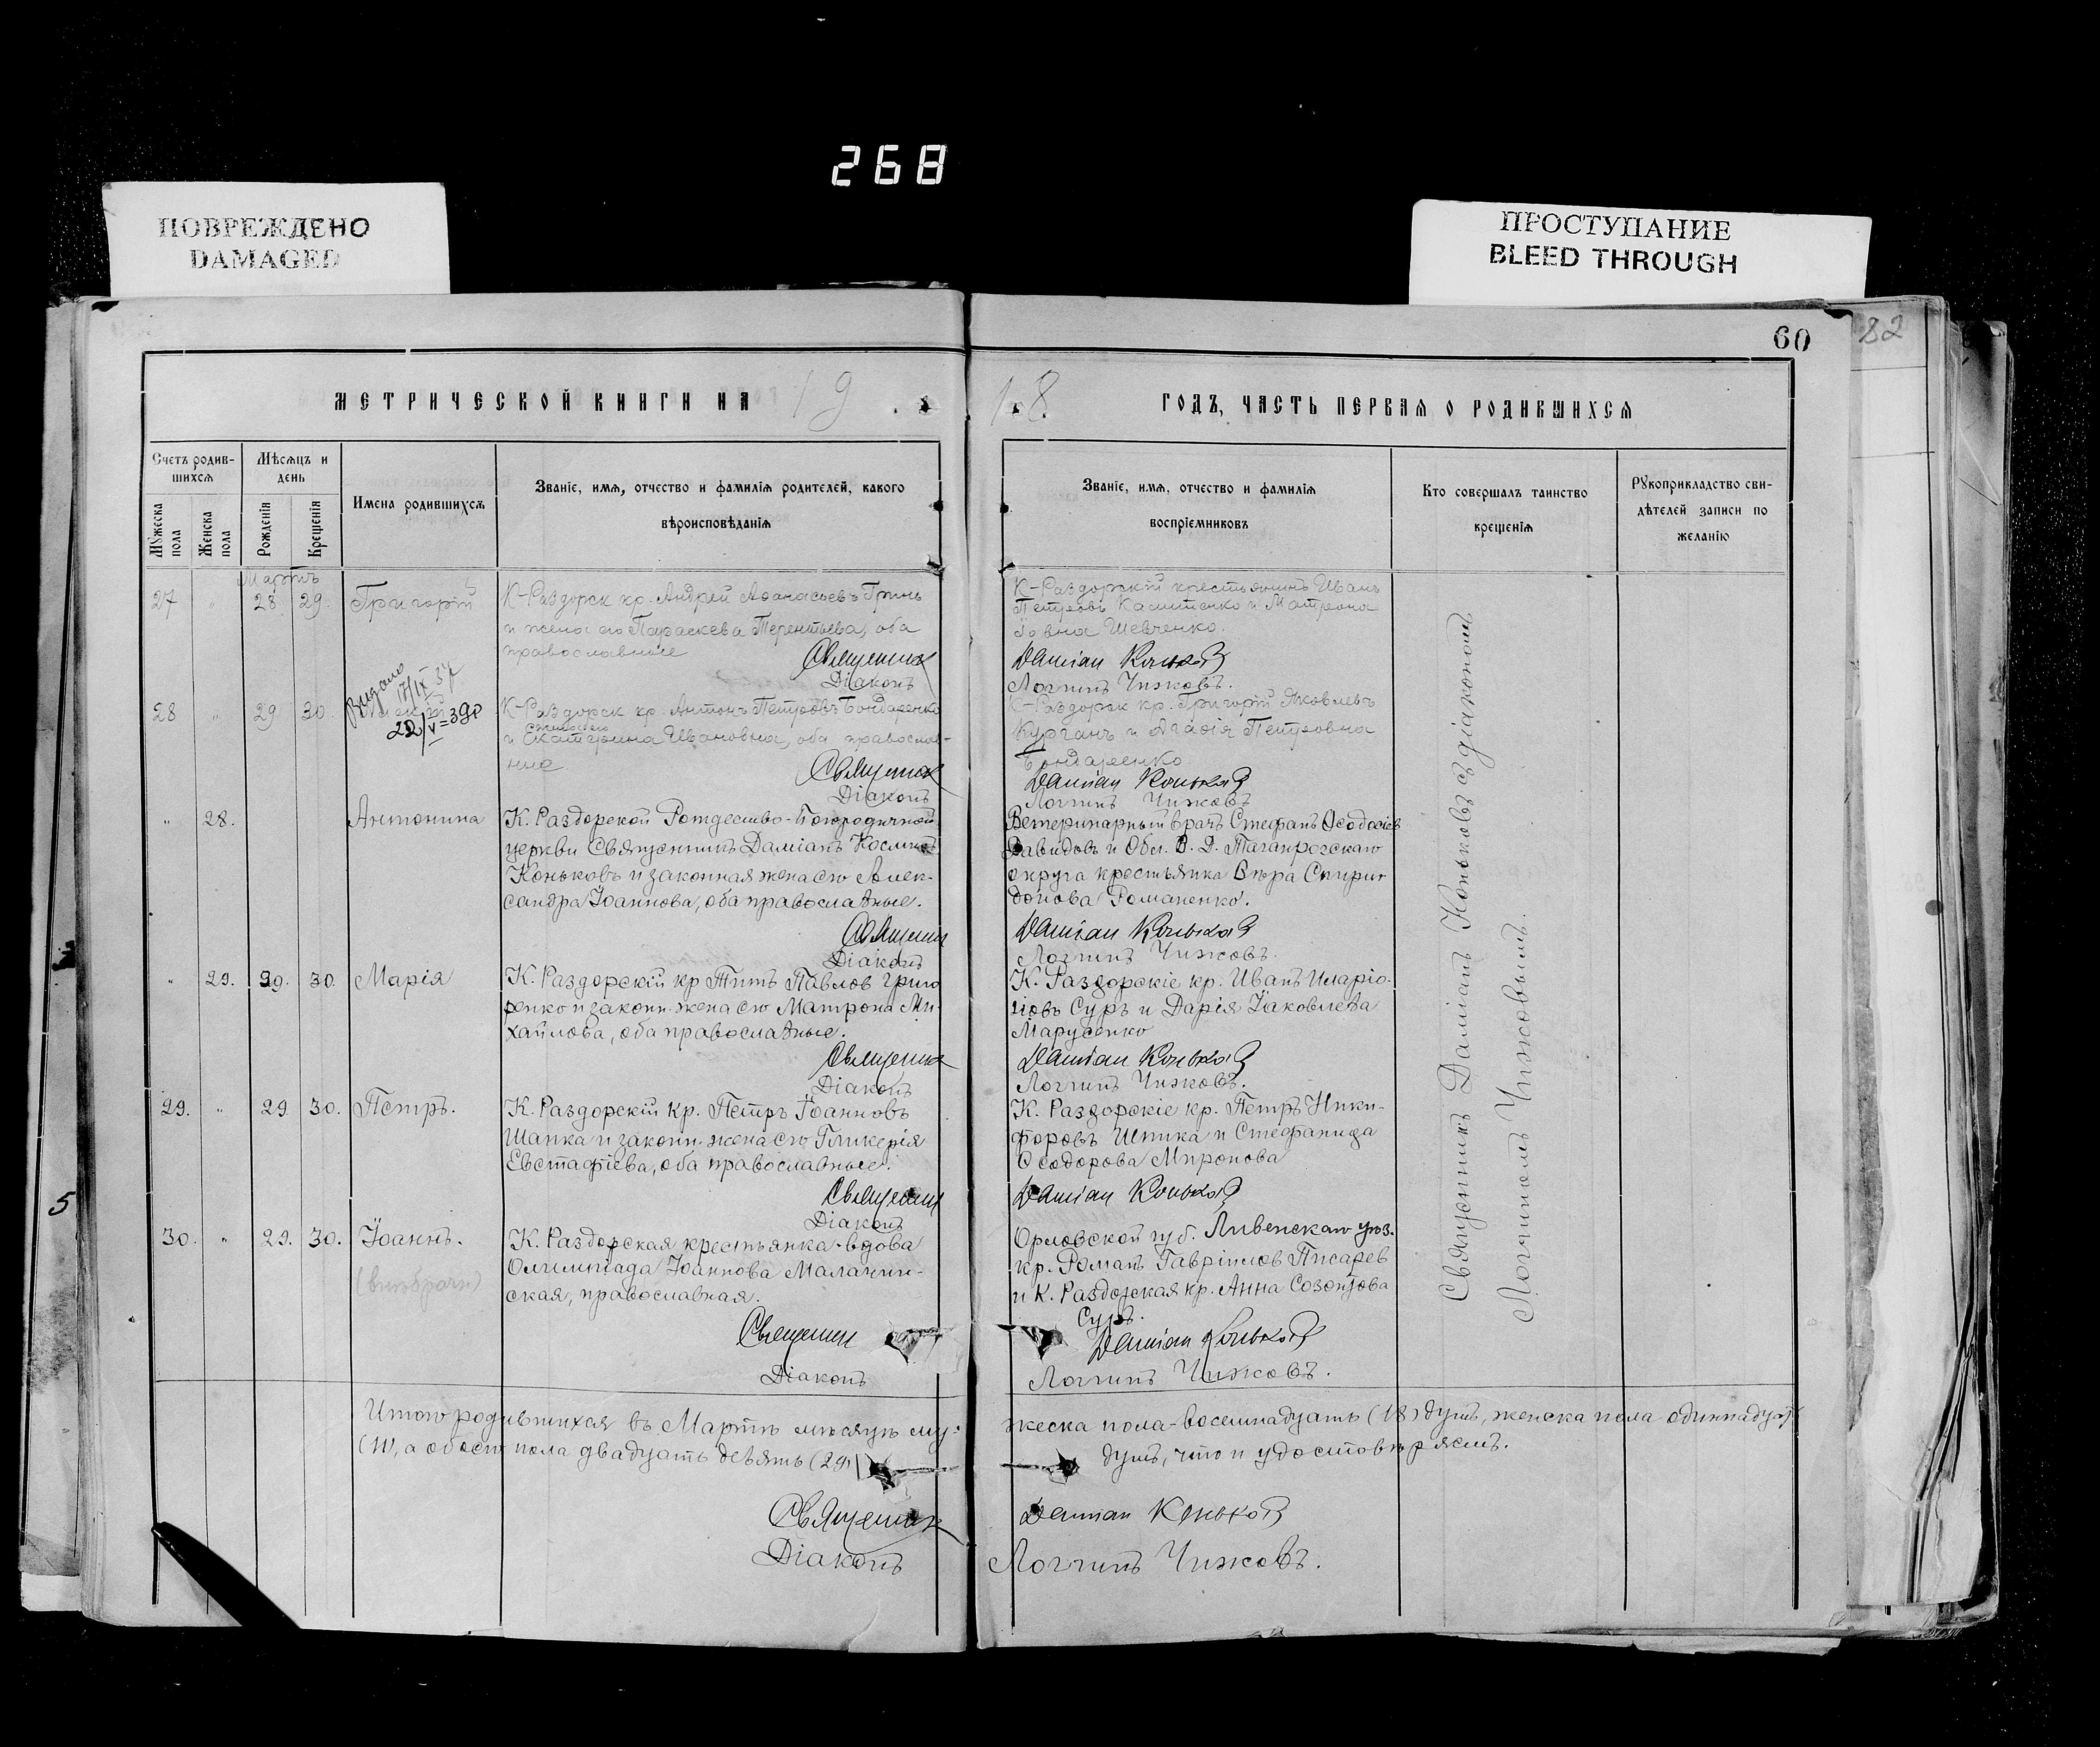 268
ПОВРЕЖДЕНО
DAMAGED
ПРОСТУПАНИЕ
BLEED THROUGH
60
82
МЕТРИЧЕСКОЙ КНИГИ НА 19
18 ГОДЪ, ЧАСТЬ ПЕРВАЯ О РОДИВШИХСЯ
Счетъ родив-
шихся
Мужеска пола
Женска пола
Мѣсяцъ и день
Рожденія
Крещенія
Имена родившихся
Званіе, имя, отчество и фамилія родителей, какого
вѣроисповѣданія
Званіе, имя, отчество и фамилія
воспріемниковъ
Кто совершалъ таинство
крещенія
Рукоприкладство сви-
дѣтелей записи по
желанію
Мартъ
27 " 28 29. Григорій
К-Раздорск кр. Андрей Аѳанасьевъ Гринь
и жена его Параскева Терентьева, оба
православные
Священник
Діаконъ
К-Раздорскій крестьянинъ Иванъ
Петровъ и Матрона
Шевченко.
Damian Коньков
Логгинъ Чижовъ.
Выдано
17/IX 37
22/V=39р
28 " 29 30.
К-Раздорск кр. Антонъ Петровъ Бондаренко
и Екатерина Ивановна, оба православ-
ные.
Священник
Діаконъ
К-Раздорск кр. Григорій Яковлевъ
Курганъ и Агафія Петровна
Бондаренко
Damian Коньков
Логгинъ Чижовъ
" 28. Антонина
К. Раздорской Рождество-Богородичной
церкви Священникъ Даміанъ Косминъ
Коньковъ и законная жена его Алек-
сандра Іоаннова, оба православные.
Священник
Діаконъ
Ветеринарный врачъ Стефанъ Ѳеодосіев
Давидовъ и Обл. В. Д. Таганрогскаго
округа крестьянка Вѣра Спири-
донова Романенко.
Damian Коньков
Логгинъ Чижовъ.
" 29. 29. 30. Марія
К. Раздорскій кр Титъ Павлов Григо
ренко и законн. жена его Матрона Ми-
хайлова, оба православные.
Священник
Діаконъ
К. Раздорскіе кр. Иванъ Иларіо-
новъ Суръ и Дарія Іаковлева
Марусенко
Damian Коньков
Логгинъ Чижовъ.
29. " 29 30. Петръ.
К. Раздорскій кр. Петръ Іоанновъ
Шапка и законн. жена его Гликерія
Евстафіева, оба православные.
Священник
Діаконъ
К. Раздорскіе кр. Петръ Ники-
форовъ Шпика и Стефанида
Ѳеодорова Миронова
Damian Коньков
30. " 29. 30. Іоаннъ.
(внѣбрачн)
К. Раздорская крестьянка-вдова
Олимпіада Іоаннова Малахин-
ская, православная.
Священник
Діаконъ
Орловской губ. Ливенскаго уѣз.
кр. Романъ Гавріилов Писарев
и К. Раздорская кр. Анна Созонтова
Суръ.
Damian Коньков
Логгинъ Чижовъ.
Священникъ Даміанъ Коньковъ съ діакономъ
Логгиномъ Чижовымъ.
Итого родившихся въ Мартѣ мѣсяцѣ му-
жеска пола-восемнадцать (18) душъ, женска пола одиннадцать
(11), а обоего пола двадцать девять (29)
душъ, что и удостовѣряемъ.
Священник Damian Коньков
Діаконъ Логгинъ Чижовъ.
5